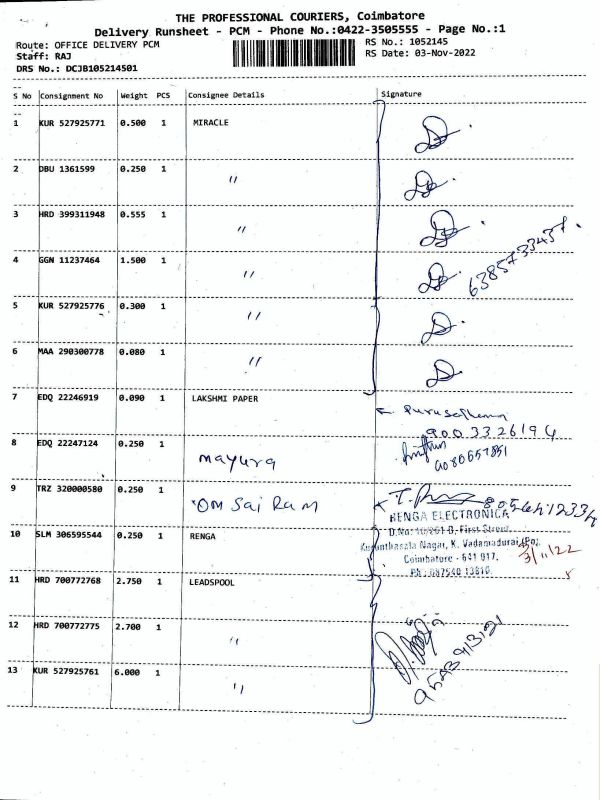 THE PROFESSIONAL COURIERS, Coimbatore
Delivery Runsheet - PCM - Phone No.:0422-3505555 - Page No.:1
Route: OFFICE DELIVERY PCM RS No.: 1052145
Staff: RAJ RS Date: 03-Nov-2022
DRS No.: DCJB105214501
S No Consignment No Weight PCS Consignee Details Signature
1 KUR 527925771 0.500 1 MIRACLE
2 DBU 1361599 0.250 1 "
3 HRD 399311948 0.555 1 "
4 GGN 11237464 1.500 1 " 6385733437.
5 KUR 527925776 0.300 1 "
6 MAA 290300778 0.080 1 "
7 EDQ 22246919 0.090 1 LAKSHMI PAPER
9003326194
8 EDQ 22247124 0.250 1 mayura
9 TRZ 320000580 0.250 1 OM Sai RAM
RENGA ELECTRONICA
10 SLM 306595544 0.250 1 RENGA
Nagar, K. Vadamadurai (Po),
Coimbatore - 641 017. 3/11/22
11 HRD 700772768 2.750 1 LEADSPOOL
12 HRD 700772775 2.700 1 "
13 KUR 527925761 6.000 1 "